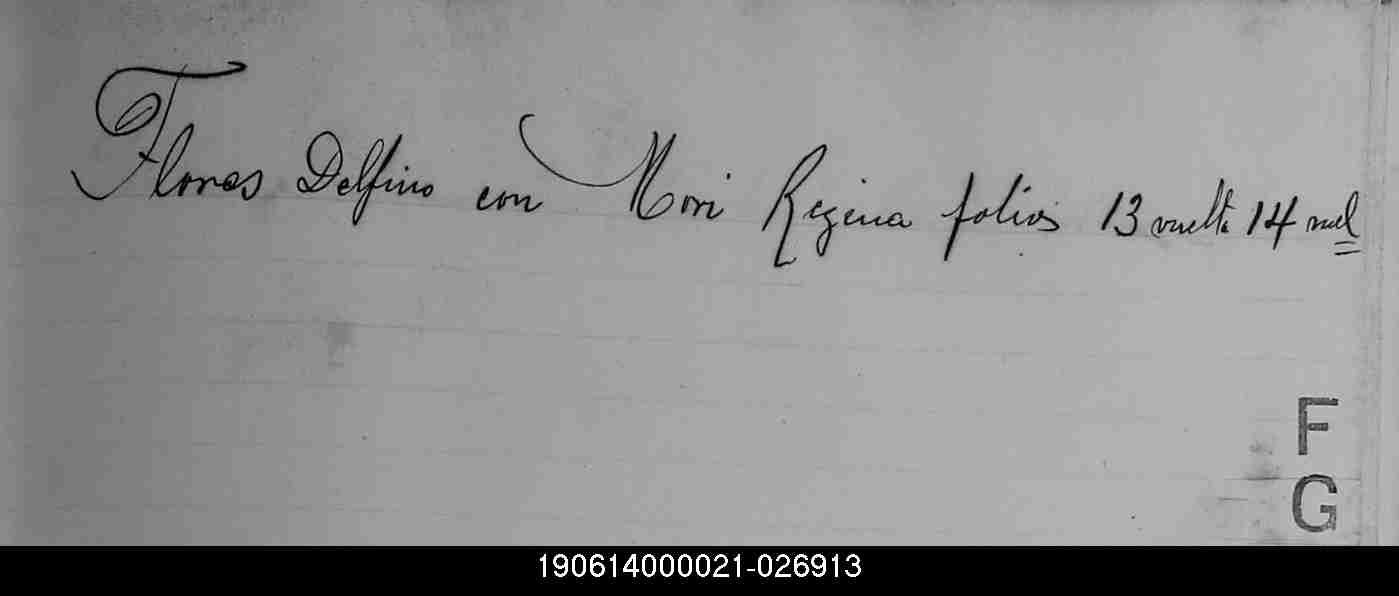 Flores Delfino con Mori Regina folios 13 vuelta 14
F
G
190614000021-026913